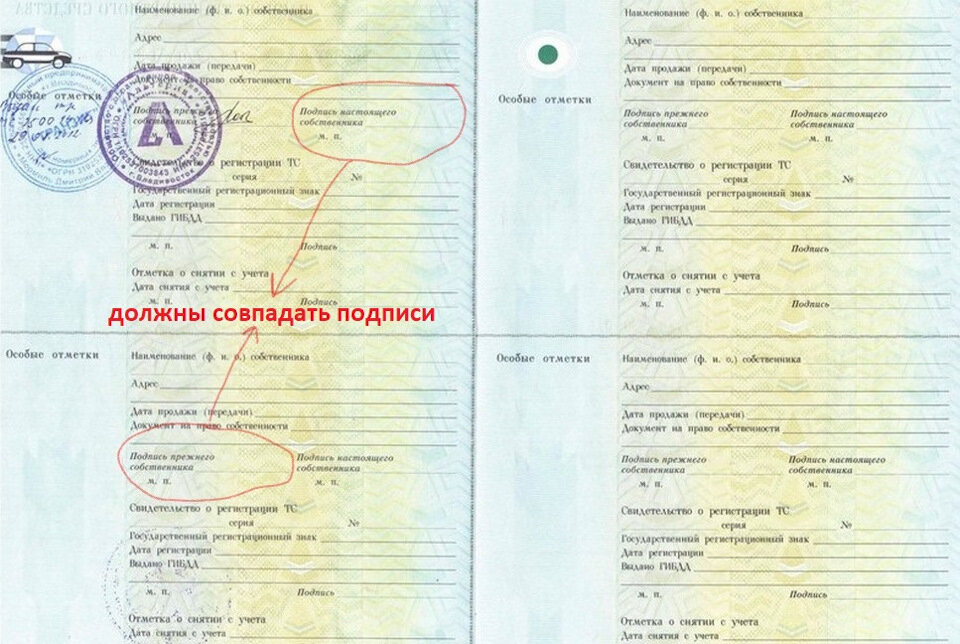 Наименование (ф. и. о.) собственника
Адрес
Дата продажи (передачи)
Документ на право собственности
Особые отметки
Подпись прежнего
собственника
м. п.
Подпись настоящего
собственника
м. п.
Свидетельство о регистрации ТС
серия №
Государственный регистрационный знак
Дата регистрации
Выдано ГИБДД
м. п. Подпись
Отметка о снятии с учета
Дата снятия с учета
м. п. Подпись
должны совпадать подписи
Наименование (ф. и. о.) собственника
Адрес
Дата продажи (передачи)
Документ на право собственности
Особые отметки
Подпись прежнего
собственника
м. п.
Подпись настоящего
собственника
м. п.
Свидетельство о регистрации ТС
серия №
Государственный регистрационный знак
Дата регистрации
Выдано ГИБДД
м. п. Подпись
Отметка о снятии с учета
Дата снятия с учета
м. п. Подпись
Особые отметки
Наименование (ф. и. о.) собственника
Адрес
Дата продажи (передачи)
Документ на право собственности
Подпись прежнего
собственника
м. п.
Подпись настоящего
собственника
м. п.
Свидетельство о регистрации ТС
серия №
Государственный регистрационный знак
Дата регистрации
Выдано ГИБДД
м. п. Подпись
Отметка о снятии с учета
Дата снятия с учета
Особые отметки
Наименование (ф. и. о.) собственника
Адрес
Дата продажи (передачи)
Документ на право собственности
Подпись прежнего
собственника
м. п.
Подпись настоящего
собственника
м. п.
Свидетельство о регистрации ТС
серия №
Государственный регистрационный знак
Дата регистрации
Выдано ГИБДД
м. п. Подпись
Отметка о снятии с учета
Дата снятия с учета